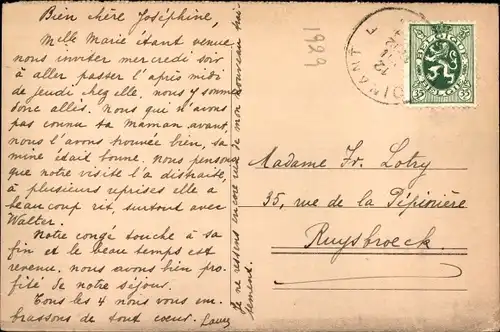 Bien chère Joséphine,
Melle Marie étant venue
nous inviter mercredi soir
à aller passer l'après midi
de jeudi chez elle, nous y sommes
donc allés. Nous qui n'avons
pas connu ta Maman avant,
nous l'avons trouvée bien, sa
mine était bonne. Nous pensons
que notre visite l'a distraite,
à plusieurs reprises elle a
beaucoup rit, surtout avec
Walter.
Notre congé touche à sa
fin et le beau temps est
revenu, nous avons bien pro-
fité de notre séjour.
Tous les 4 nous vous em-
brassons de tout coeur.
Je ne ressens encore rien de mon nouveau trai-
tement.
1929
DINANT
12
BELGIQUE
35 BELGIE 35
Madame Fr. Lotry
35, rue de la Pépinière
Ruysbroeck.